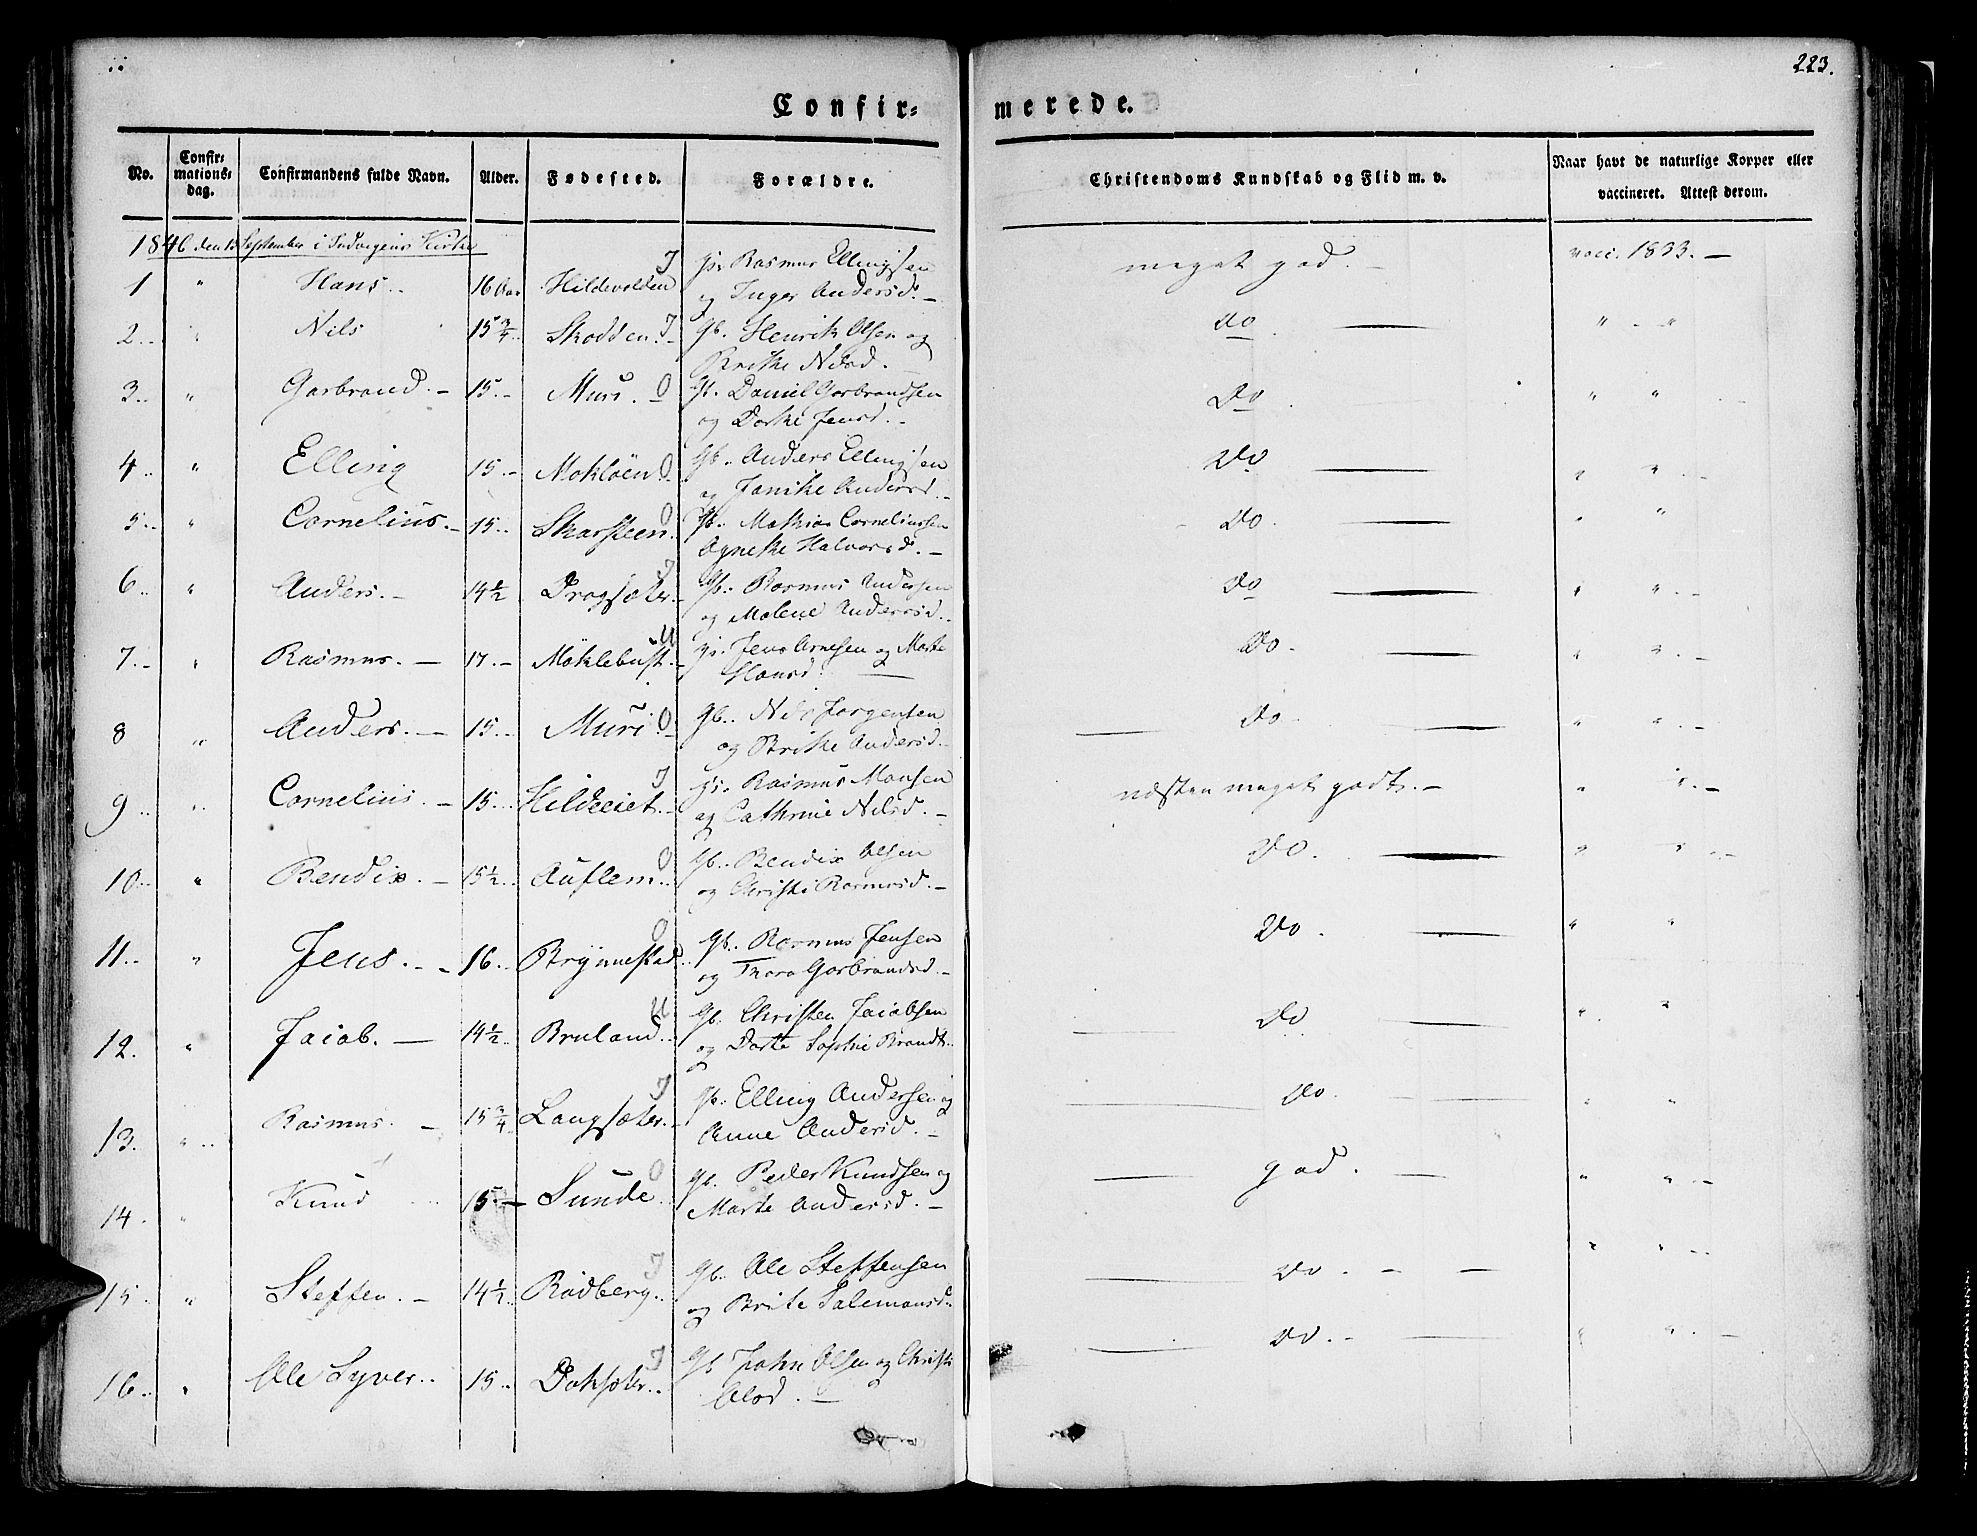 223.
Confir=
merede.
No. Confir=mations=dag. Confirmandens fulde Navn. Alder. Fødested. Forældre. Christendoms Kundskab og Flid m. v. Naar havt de naturlige Kopper eller vaccineret. Attest derom.
1846 den 13 September i Indvigens Kirke
1 " Hans.. 16 Aar Hildevolden I Rasmus Ellingsen meget god. — vacc. 1833. —
og Inger Andersd. —
2.. " Nils 15 3/4.. Skodden. I Gb. Henrik Olsen og do — " - "
Brithe Nilsd. —
3.. " Garbrand. — 15. - Muri. O Gb. Daniel Garbrandsen Do " "
og Dorthe Jensd. -
4.. " Elling 15. - Mokløen O Gb.. Anders Ellingsen Do — " "
og Janike Andersd. -
5.. " Cornelius. - 15.. Skarsteen. O Gb.. Mathias Corneliussen - Do. — " "
Agnethe Halvorsd. —
6.. " Anders. - 14 1/2 Dragsæter. I Gb.. Rasmus Andersen do — " "
og Malene Andersd..
7. - " Rasmus. — 17. - Møklebust. U Jens Arnesen og Marte Do. — " "
Hansd. —
8 " Anders. — 15.. Muri O Gb.. Nils Jørgensen — Do — " "
og Brithe Andersd.
9.. " Cornelius. - 15... Hildeeiet. I Rasmus Monsen næsten meget godt. — " "
og Cathrine Nilsd. —
10.. " Bendix. — 15 1/2.. Auflem.. O Gb.. Bendix Olsen Do. — " "
og Christi Rasmusd. —
11.. " Jens. - 16.. Brynnestad.. O Gb.. Rasmus Jensen Do. — " "
og Thora Garbrandsd. -
12. " Jacob. — 14 1/2.. Bruland.. U Gb. Christen Jacobsen — Do — " "
og Dorte Sophie Brandt..
13. " Rasmus. — 15 3/4 Langsæter. I Gb.. Elling Andersen og — do. — " "
Anne Andersd. —
14. " Knud 15. — Sunde.. O Gb. Peder Knudsen og — god. — " "
Marte Andersd. —
15. " Steffen. — 14 1/2.. Rødberg.. I Gb.. Ole Steffensen — do. - — " "
og Brite Salemonsd..
16.. " Ole Syver.. 15.. Daksæter.. I Gb. John Olsen og Christi — do. - — " "
Olsd. —